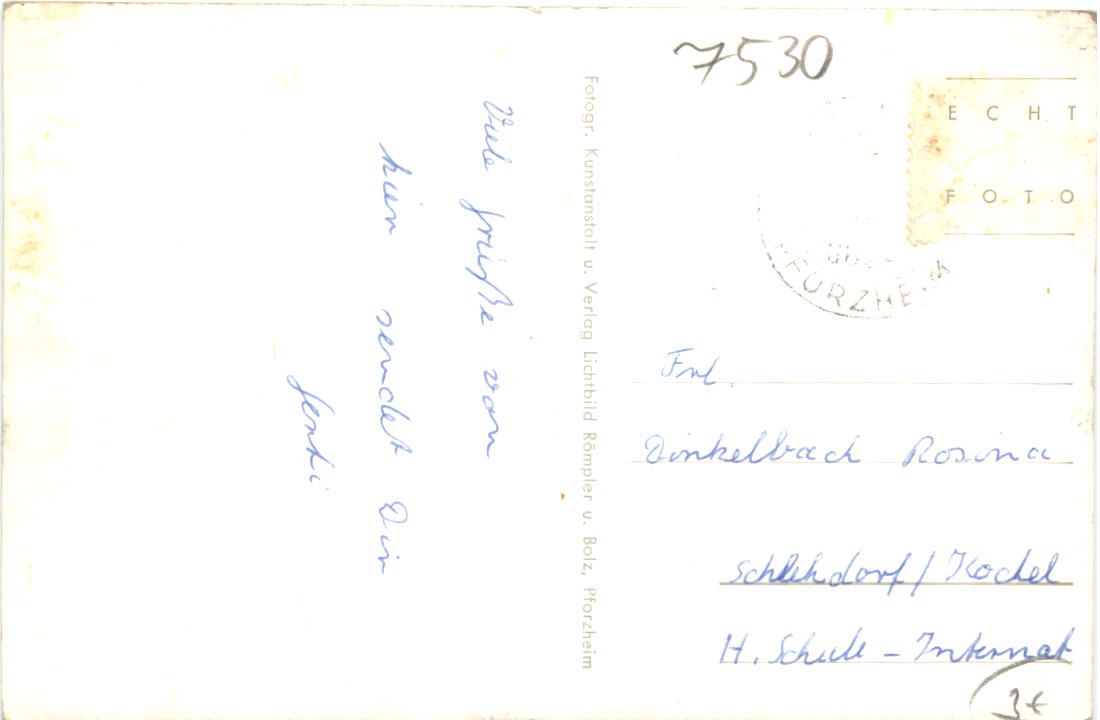 Viele Grüße von
hier sendet Dir
Fotogr. Kunstanstalt u. Verlag Lichtbild Römpler u. Bolz, Pforzheim
7530
ECHT
FOTO
über
PFORZHEIM
Frl.
Dinkelbach Rosina
Schlehdorf/Kochel
H. Schule - Internat
3€